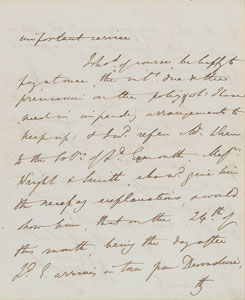 important service.
I shod. of course be happy to
pay at once the int. due & the
premium on the policy
need in impending arrangements to
keep up: & wod. refer Mr.
to the Solrs. of Ld. Exmouth. Messrs
Wright & Smith, who wd. give him
the necessy explanations & would
show him, that on the 24th of
this month being the day after
Ld. E. arrives in town from Devonshire